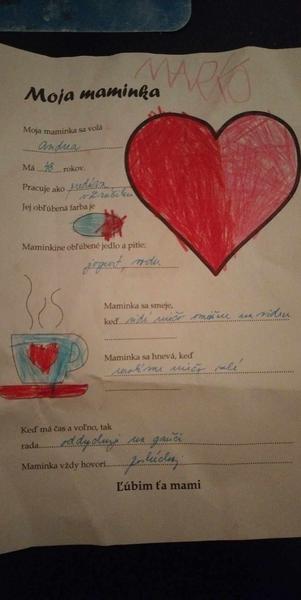 MARKO
Moja maminka
Moja maminka sa volá
Andrea
Má 48 rokov.
Pracuje ako predáva
Jej obľúbená farba je
Maminkine obľúbené jedlo a pitie:
jogurt, voda
Maminka sa smeje,
keď vidí niečo
Maminka sa hnevá, keď
niečo zlé
Keď má čas a voľno, tak
rada oddychuje na gauči
Maminka vždy hovorí
Ľúbim ťa mami